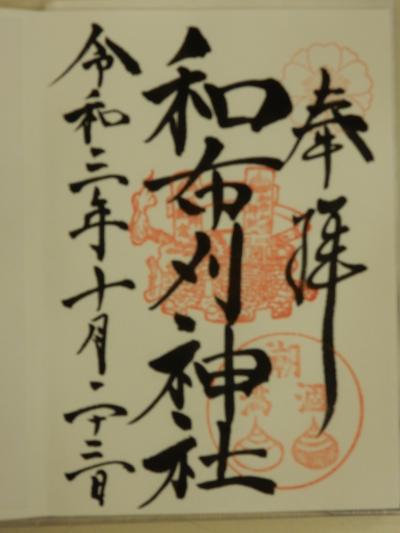 奉拝
和布刈神社
令和三年十月二十三日